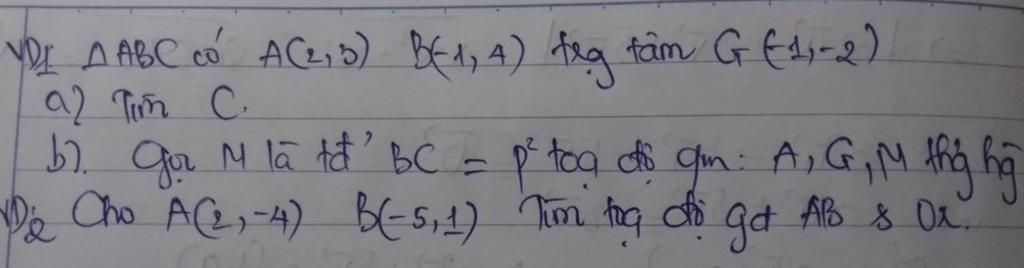 VD1 ΔABC có A(2,3) B(-1,4) trg tâm G(-1,-2)
a) Tìm C.
b). Gọi M là tđ' BC = p² toạ độ cm: A, G, M thg hg
VD2 Cho A(2,-4) B(-5,1) Tìm toạ độ gđ AB & Ox.